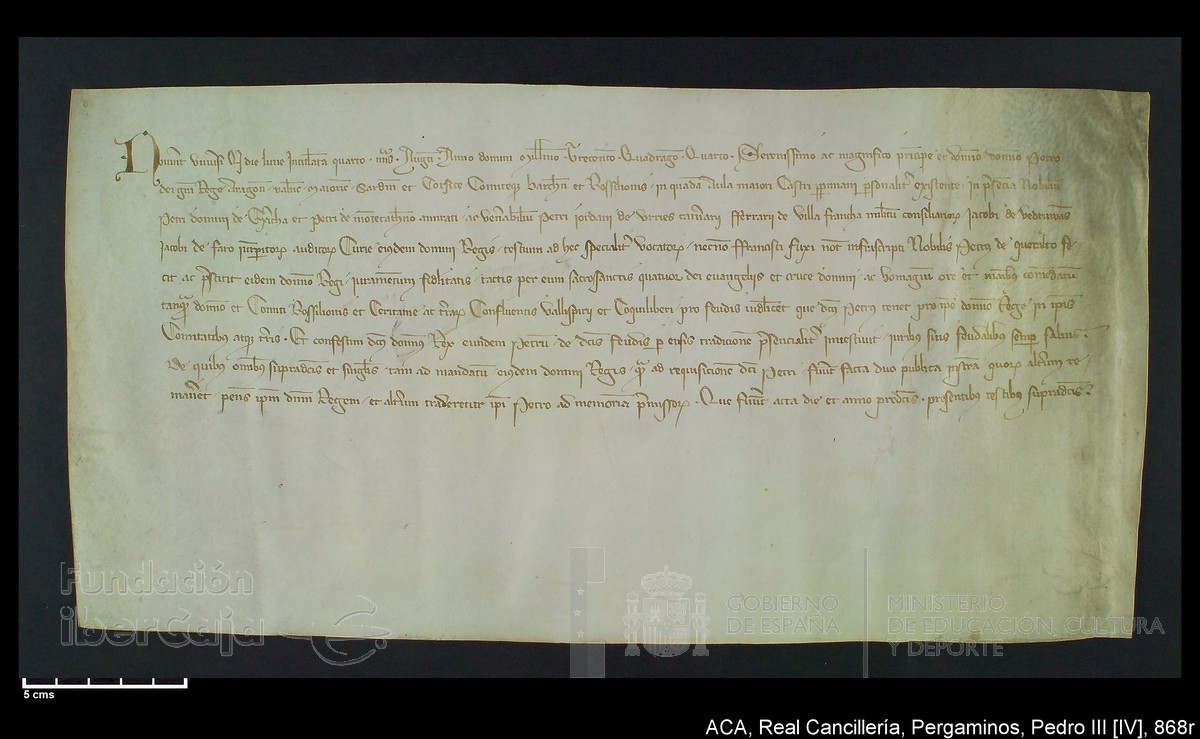 Noverint universi Qd die lune Intitulata quarto . nonas . Augusti . Anno domini Millesimo . Trecentesimo . Quadragesimo . Quarto . Serenissimo ac magnifico principe et domino domino Petro
dei gratia Rege Aragonum . Valencie . Maiorice . Sardinie et Corsice Comiteque Barchinone et Rossilionis . in quadam Aula maiori Castri perpiniani personaliter existente . in presencia Nobilium
Petri domini de et Petri de montecatheno amirati . ac venerabilium Petri iordani de urries Ferrarii de villa francha militum consiliariorum Jacobi de
Jacobi de faro iurisperitorum auditorum Curie eiusdem domini Regis . testium ad hec specialiter vocatorum . necnon Francisci fuxi notarii infrascripti Nobilis Petrus de queralto fe-
cit ac prestitit eidem domino Regi . iuramentum fidelitatis . tactis per eum sacrosanctis quatuor dei evangeliis et cruce domini . ac homagium ore et manibus comendatum
tanquam domino et Comiti Rossilionis et Ceritanie ac terrarum Confluentis vallispirii et Coquiliberi pro feudis videlicet que dictus Petrus tenet pro ipso domino Rege in ipsis
Comitatibus atque terris . Et confestim dictus dominus Rex eundem Petrum . de dictis feudis per ensis tradicionem presencialiter investivit . iuribus suis feudalibus semper salvis .
De quibus omnibus supradictis et singulis . tam ad mandatum eiusdem domini Regis quam ad requisicionem dicti Petri . fuerunt facta duo publica instrumenta quorum alterum re-
maneret penes ipsum dominum Regem . et alterum traderetur ipsi Petro ad memoriam premissorum . Que fuerunt acta die et anno predictis . presentibus testibus supradictis .
Fundación
iberCaja
GOBIERNO
DE ESPAÑA
MINISTERIO
DE EDUCACIÓN, CULTURA
Y DEPORTE
5 cms
ACA, Real Cancillería, Pergaminos, Pedro III [IV], 868r